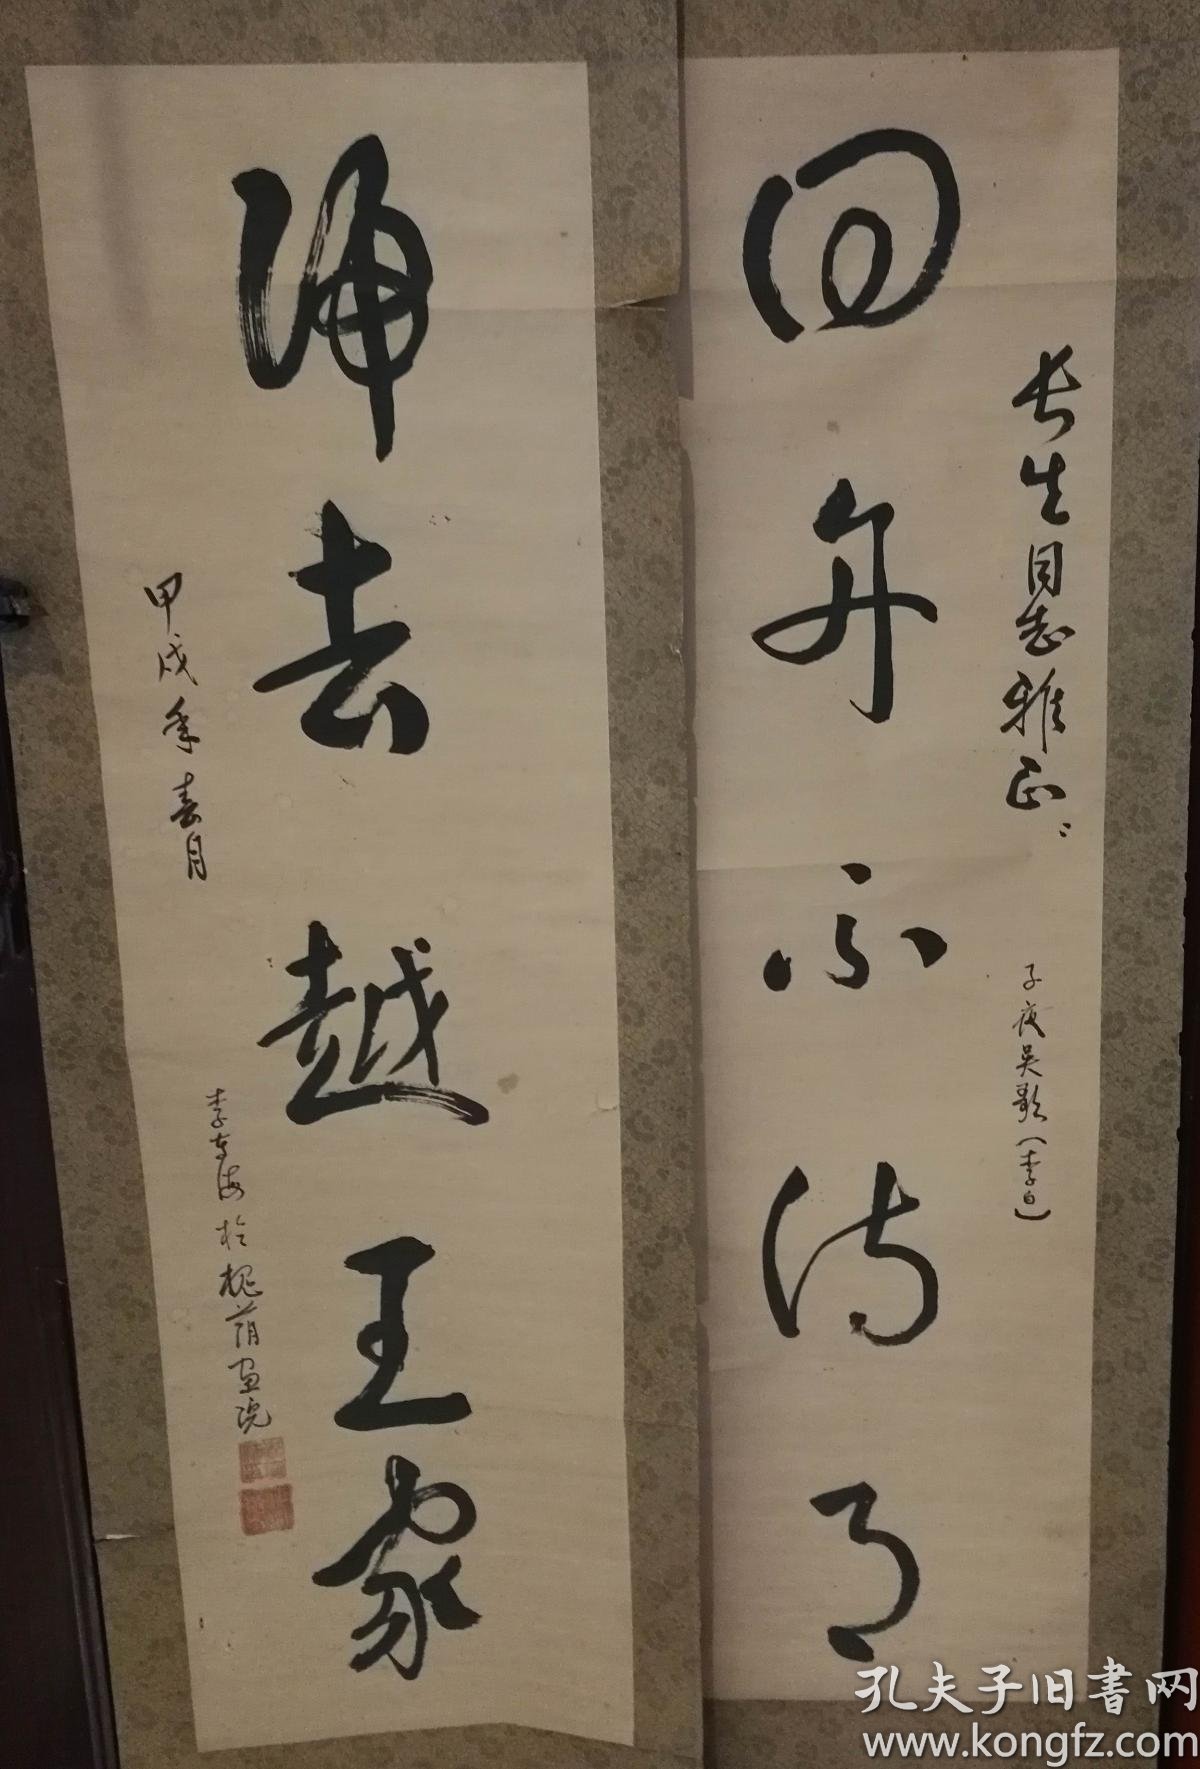 回舟不待月
长生同志雅正
子夜吴歌（李白）
归去越王家
甲戌年春月
李寿海於槐荫画院
孔夫子旧書网
www.kongfz.com